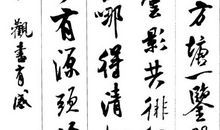 方塘一鑒
雲影共徘
哪得清如
有源頭
觀書有感